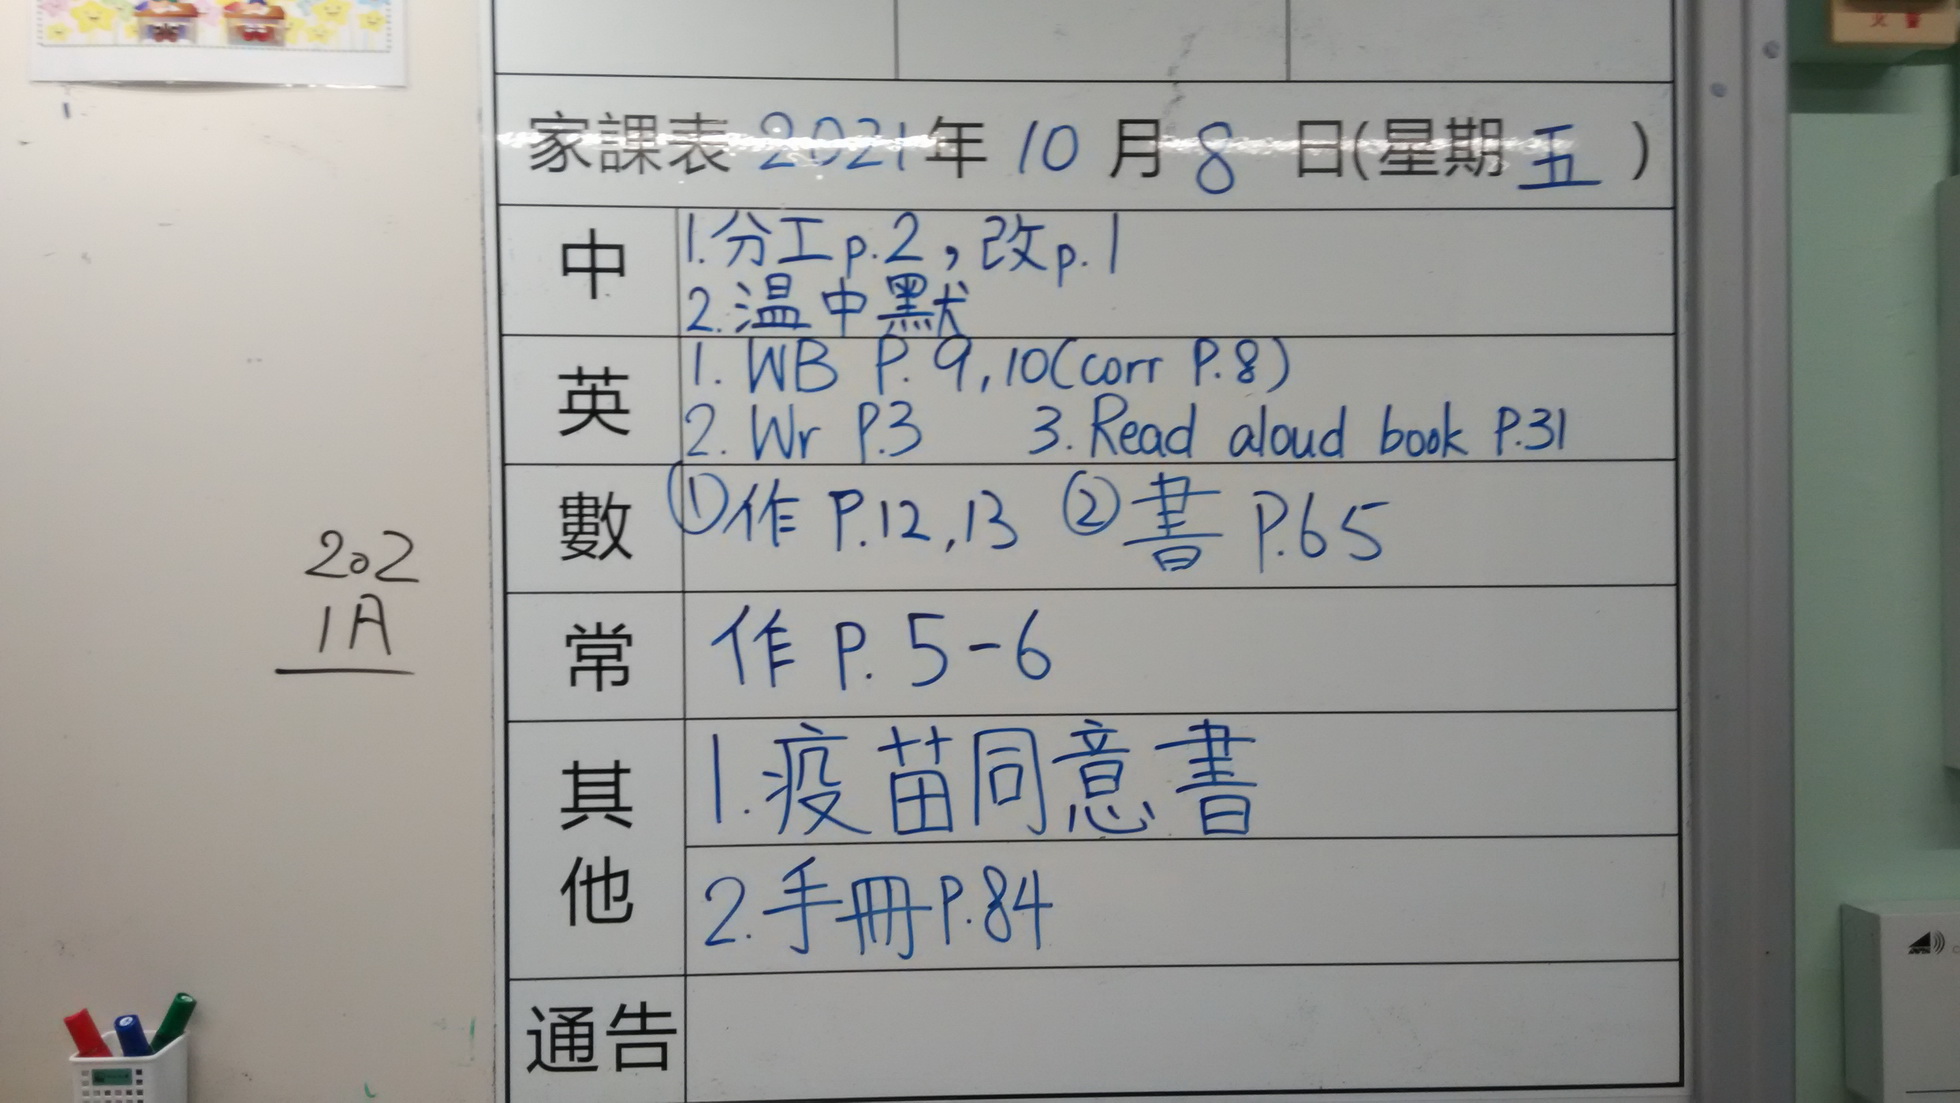 家課表 2021年 10 月 8 日(星期 五 )
中
1.分工p.2，改p.1
2.温中默
英
1. WB P.9,10(corr P.8)
2. Wr P.3 3.Read aloud book P.31
數
①作 P.12,13 ②書 P.65
常
作 P.5-6
其他
1.疫苗同意書
2.手冊P.84
通告
202
1A